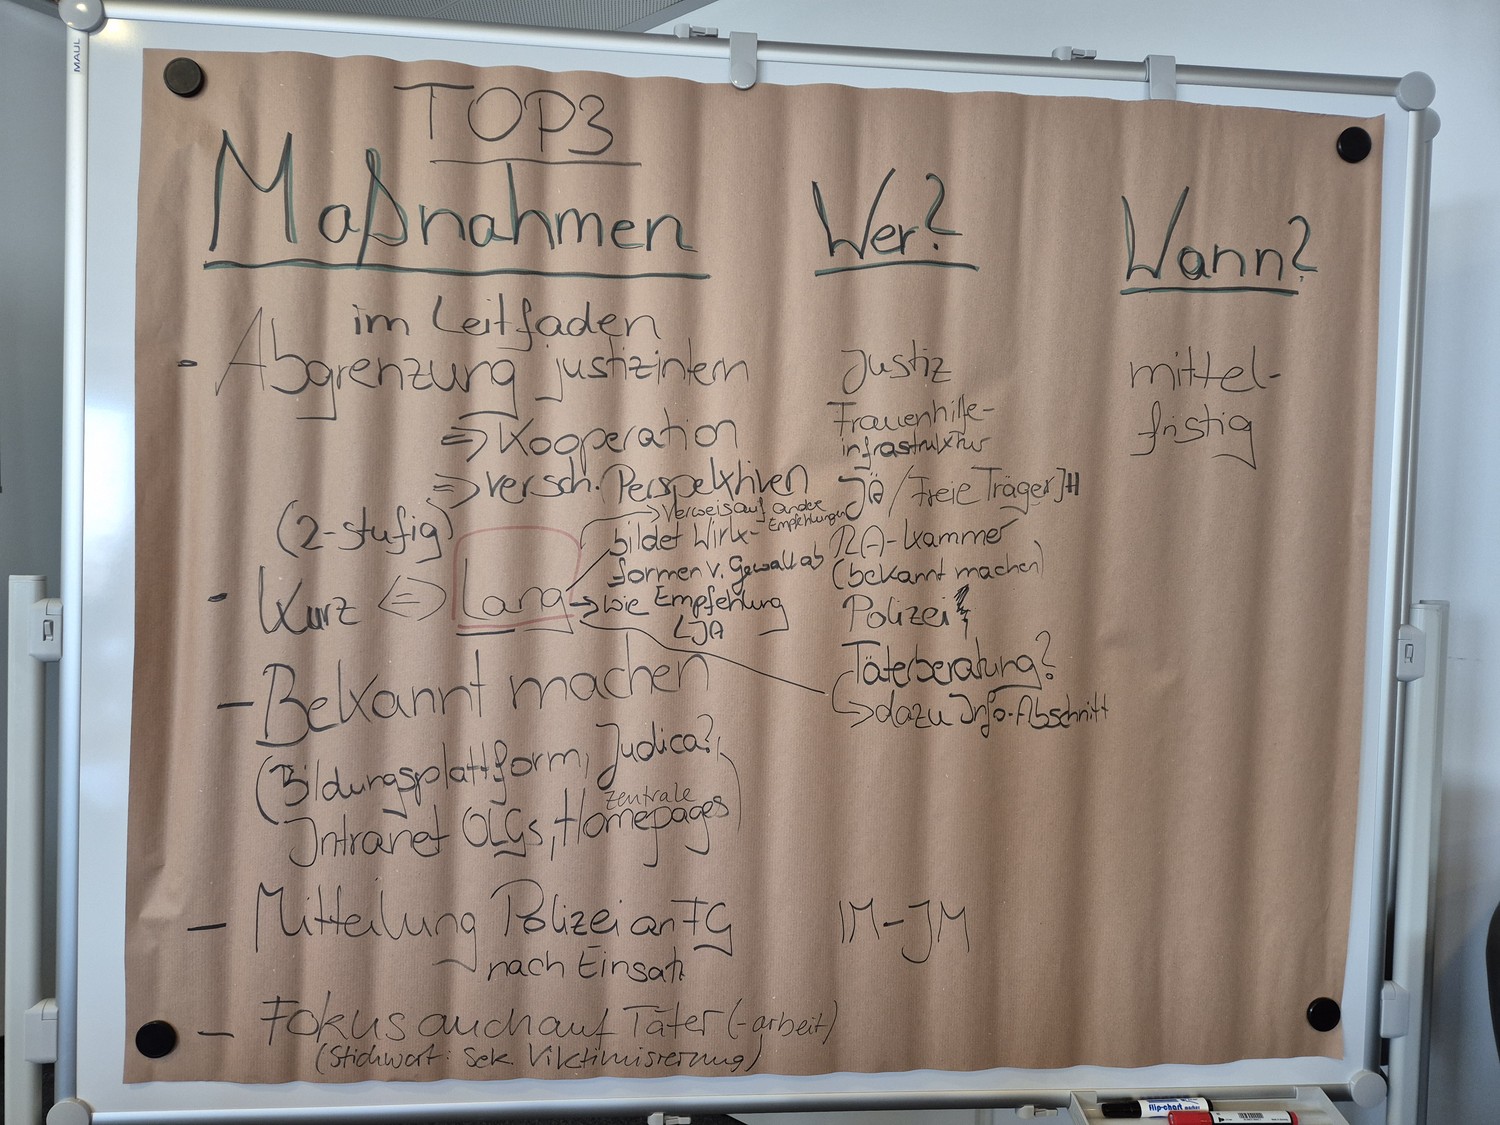 MAUL
TOP3
Maßnahmen
Wer?
Wann?
im Leitfaden
- Abgrenzung justizintern
=> Kooperation
=> versch. Perspektiven
(2-stufig)
- Kurz <=> Lang
-> Verweis auf andere
Empfehlungen
bildet Wirk-
formen v. Gewalt ab
-> wie Empfehlung
LJA
- Bekannt machen
(Bildungsplattform, Judica?,
zentrale
Intranet OLGs, Homepages)
- Mitteilung Polizei an FG
nach Einsatz
- Fokus auch auf Täter (-arbeit)
(Stichwort: Sek. Viktimisierung)
Justiz
Frauenhilfe-
infrastruktur
JÄ/Freie Träger JH
RA-Kammer
(bekannt machen)
Polizei
Täterberatung?
-> dazu Info-Abschnitt
IM-JM
mittel-
fristig
flip-chart marker